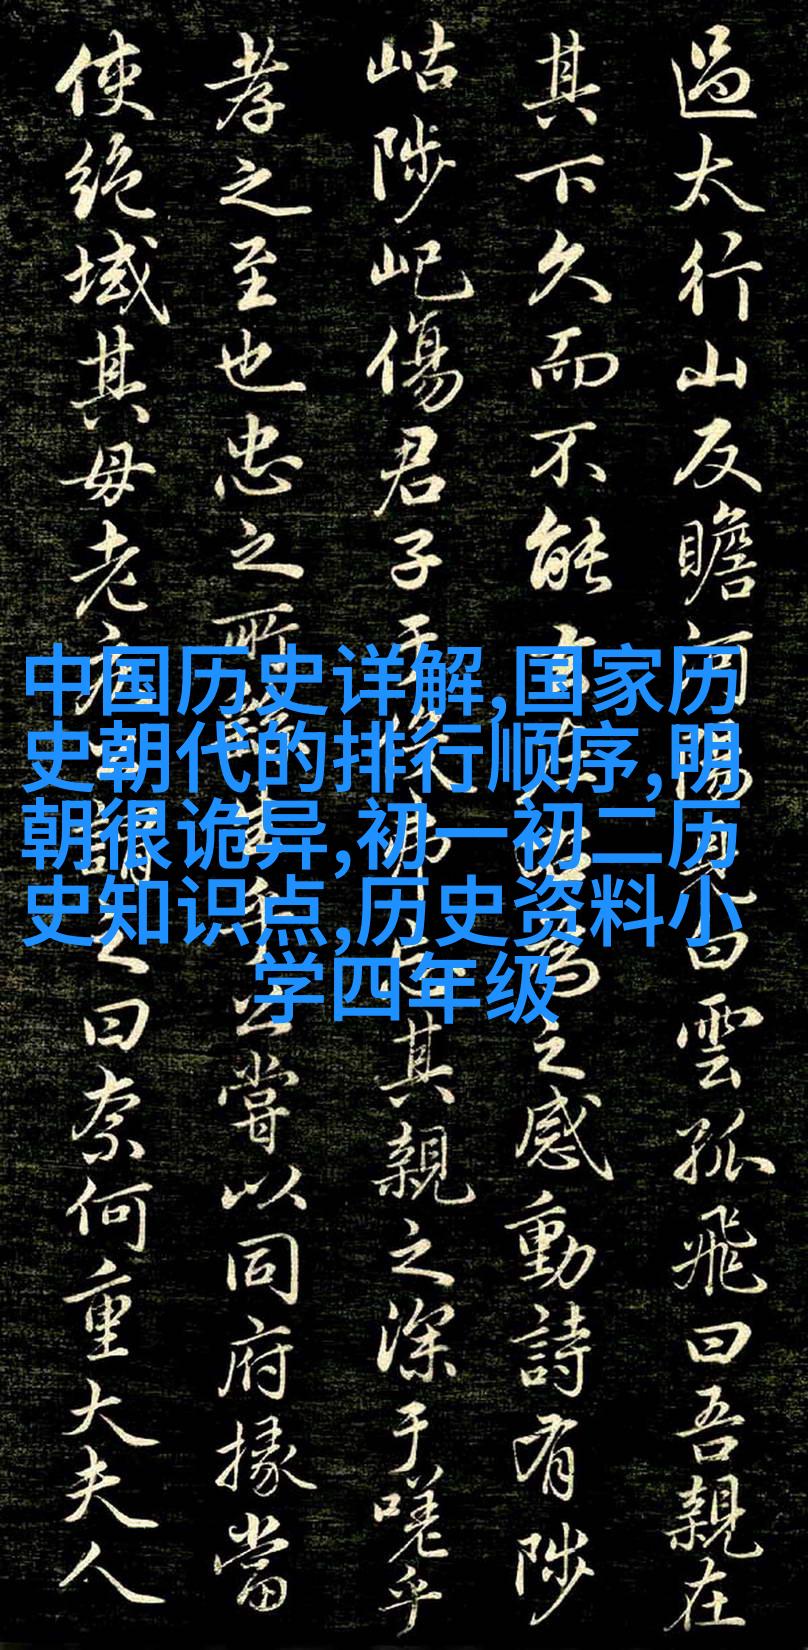 過太行山反瞻河陽見白雲孤飛曰吾親在
其下久而不能為之感動詩有陟
岵陟屺傷君子于役弗忘其親之深于嗟乎
孝之至也忠之所生公嘗以同府掾當
使絕域其母老疾公謂之曰奈何重大夫人
中国历史详解,国家历
史朝代的排行顺序,明
朝很诡异,初一初二历
史知识点,历史资料小
学四年级